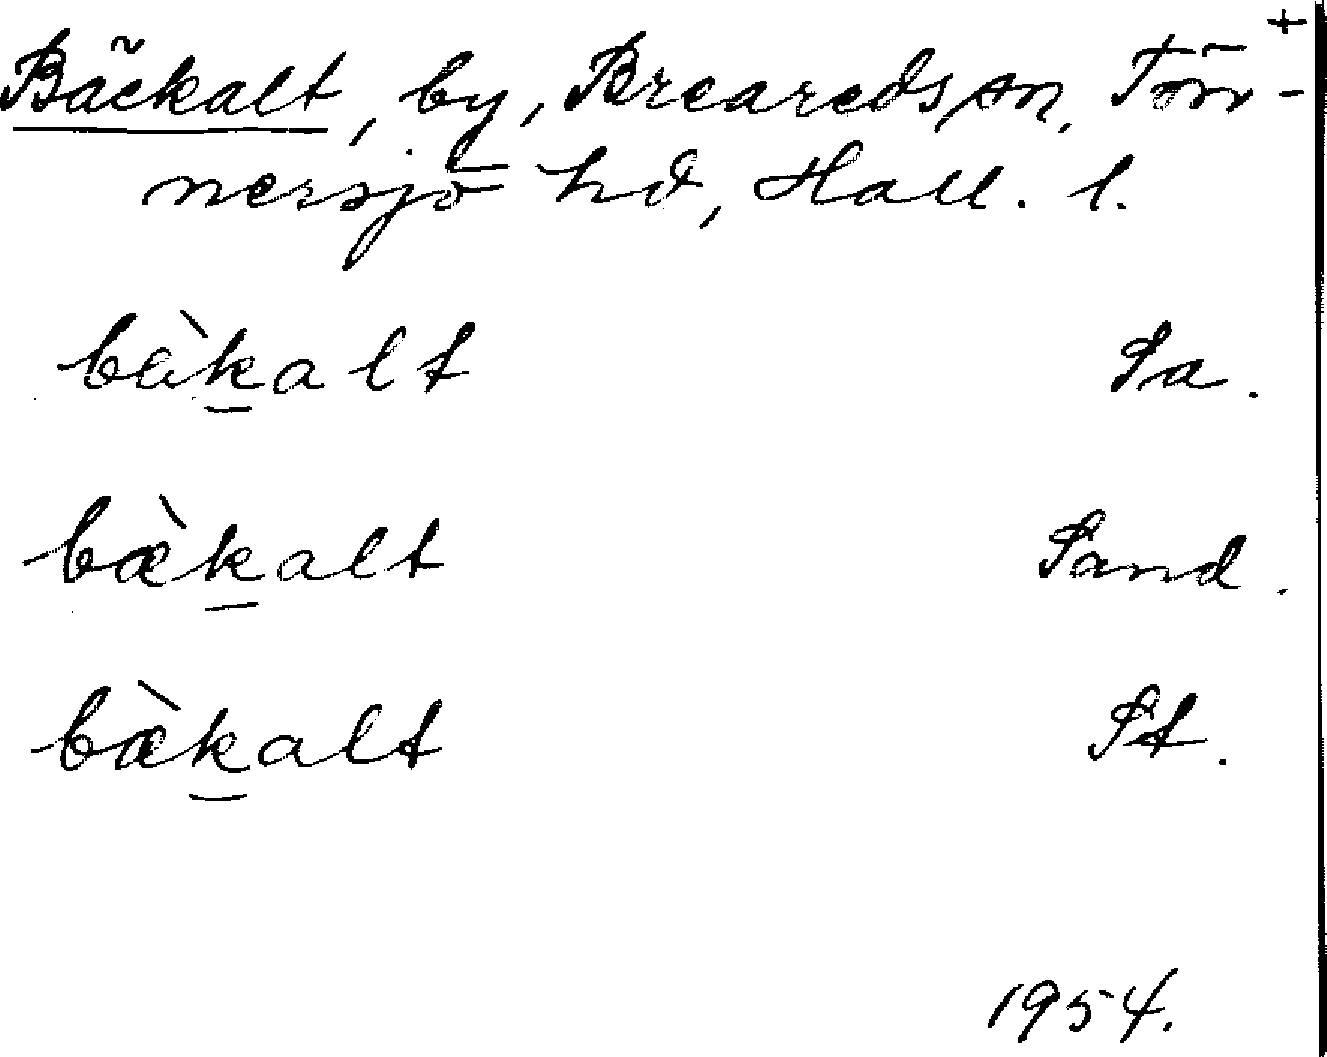 +
Bäckalt, by, Breareds sn, Tön-
nersjö hd, Hall. l.
bàk̲alt Sa.
bæ̀k̲alt Sand.
bæ̀k̲alt St.
1954.